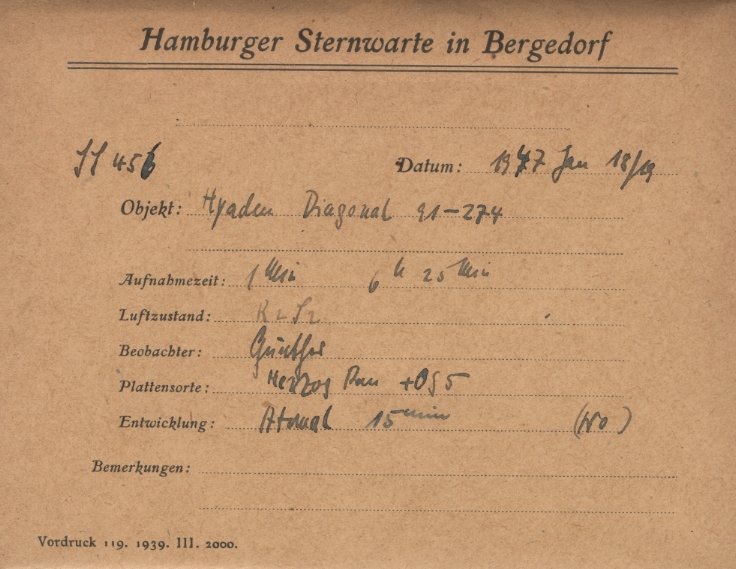 Hamburger Sternwarte in Bergedorf
Datum: 1947 Jan 18/19
Objekt: Hyaden Diagonal 91-274
Aufnahmezeit: 1 Min 6 h 25 Min
Luftzustand:
Beobachter: Günther
Plattensorte: Herzog Pan
Entwicklung: Atomal 15 min
Bemerkungen:
Vordruck 119. 1939. III. 2000.